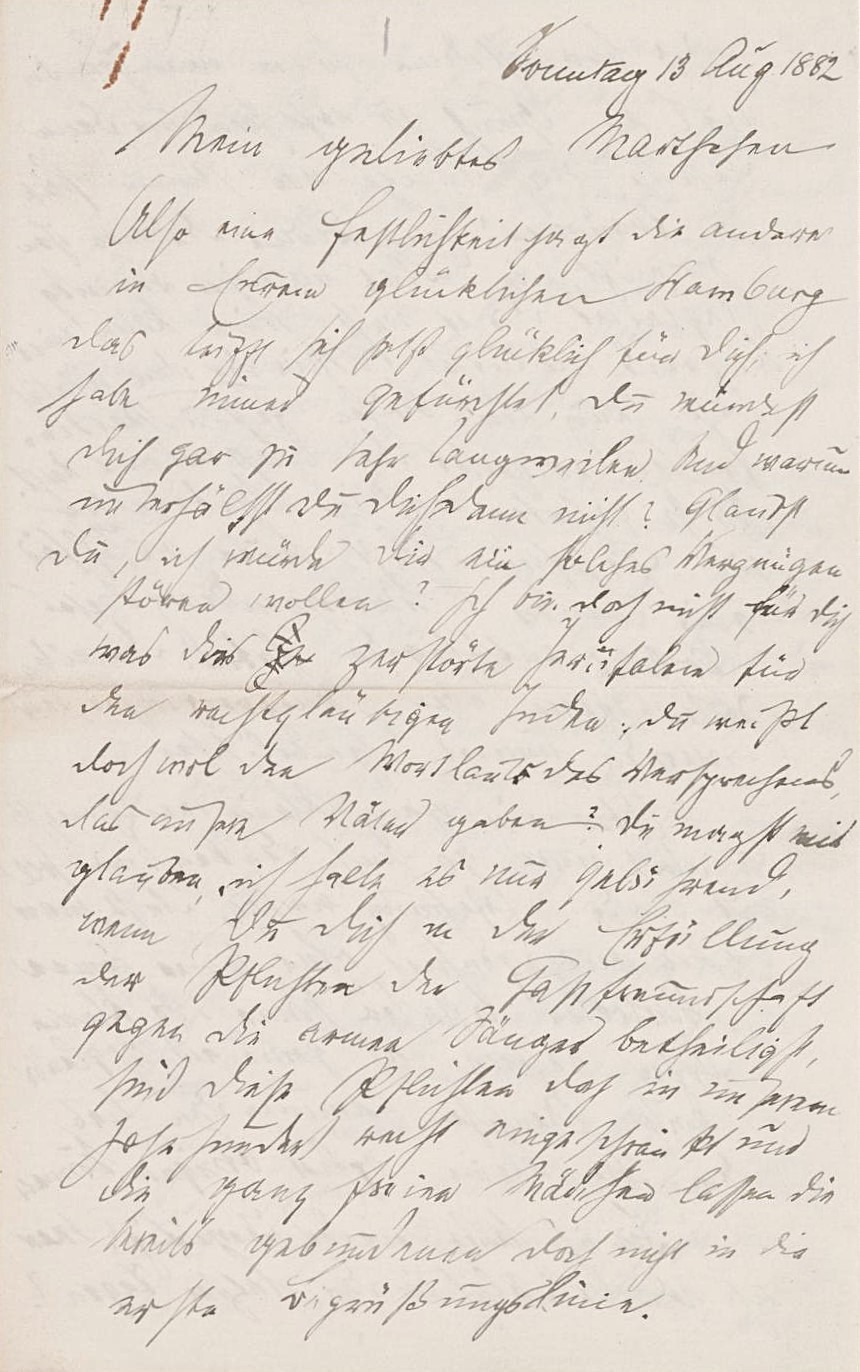 Sonntag 13 Aug 1882
Mein geliebtes Marthchen
Also eine Festlichkeit jagt die andere
in Eurem glücklichen Hamburg
das trifft sich sehr glücklich für dich; ich
habe immer gefürchtet, du würdest
dich gar zu sehr langweilen. Und warum
unterhältst du dich denn nicht? Glaubst
du, ich würde dir ein solches Vergnügen
stören wollen? Ich bin doch nicht für dich
was das zerstörte Jerusalem für
den rechtgläubigen Juden; du weißt
doch wol den Wortlaut des Versprechens,
das unsere Väter gaben? Du magst mir
glauben, ich halte es nur gebührend,
wenn Du dich an der Erfüllung
der Pflichten der Gastfreundschaft
gegen die armen Sänger betheiligst,
sind diese Pflichten doch in unserem
Jahrhundert recht eingeschränkt und
die ganz freien Mädchen lassen die
bereits gebundenen doch nicht in die
erste Begrüßungslinie.